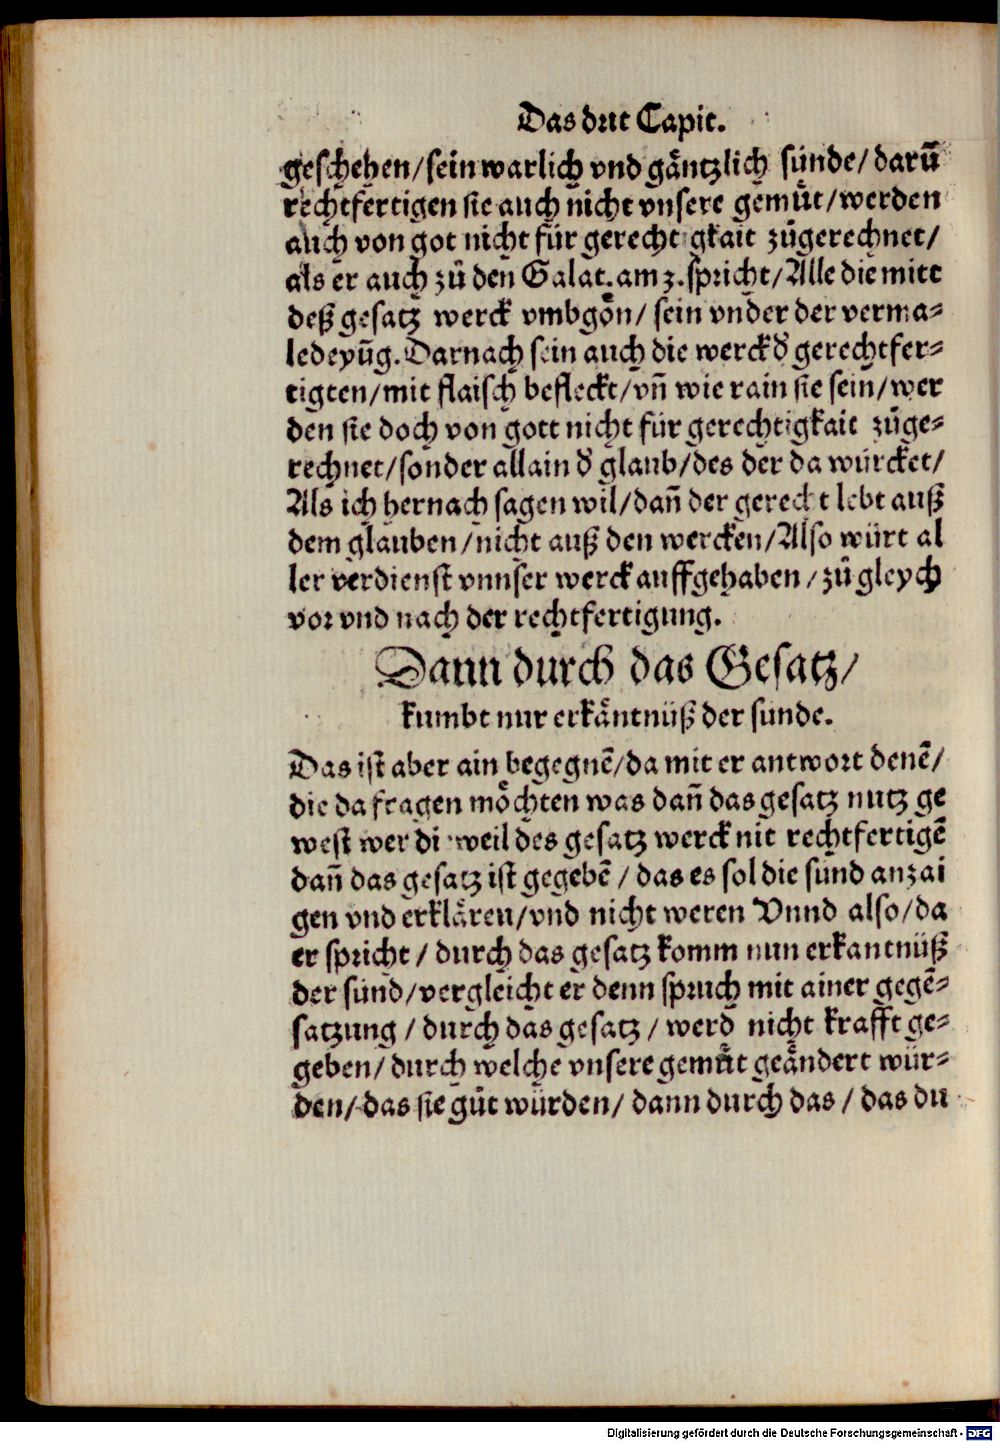 Das drit Capit.
geschehen/sein warlich vnd gäntzlich sünde/darū
rechtfertigen sie auch nicht vnsere gemuͤt/werden
auch von got nicht für gerechtigkait zuͤgerechnet/
als er auch zuͤ den Galat. am 3. spricht/Alle die mitt
deß gesatz werck vmbgoͤn/ sein vnder der verma⸗
ledeyūg. Darnach sein auch die werck đ gerechtfer⸗
tigten/mit flaisch befleckt/vn̄ wie rain sie sein/wer
den sie doch von gott nicht für gerechtigkait zuͤge⸗
rechnet/sonder allain đ glaub/des der da würcket/
Als ich hernach sagen wil/dan̄ der gerecht lebt auß
dem glauben/nicht auß den wercken/Also würt al
ler verdienst vnnser werck auffgehaben/zuͤ gleych
vor vnd nach der rechtfertigung.
Dann durch das Gesatz/
kumbt nur erkaͤntnüß der sunde.
Das ist aber ain begegnē/da mit er antwort denē/
die da fragen moͤchten was dan̄ das gesatz nutz ge
west wer dieweil des gesatz werck nit rechtfertigē
dan̄ das gesatz ist gegebē/das es sol die sünd anzai
gen vnd erklaͤren/vnd nicht weren Vnnd also/da
er spricht/durch das gesatz komm nun erkantnüß
der sünd/vergleicht er denn spruch mit ainer gegē⸗
satzung/durch das gesatz/werd nicht krafft ge⸗
geben/durch welche vnsere gemuͤt geaͤndert wür⸗
den/das sie guͤt würden/dann durch das/das du
Digitalisierung gefördert durch die Deutsche Forschungsgemeinschaft - DFG